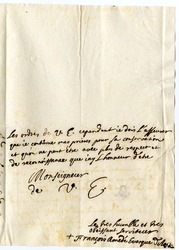 Les ordres de V. E. cependant je dois l'assurer
que je continue mes prieres pour sa conservation
et qu'on ne peut être avec plus de respect et
de reconnoissance que j'ay l'honneur d'être
Monseigneur
de V. E.
Le très humble et très
obeissant serviteur
+ François André Evêque